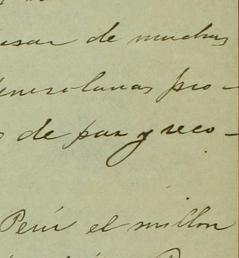 usar de muchas
enezolanas pro-
s de paz y reco-
Perú el millon